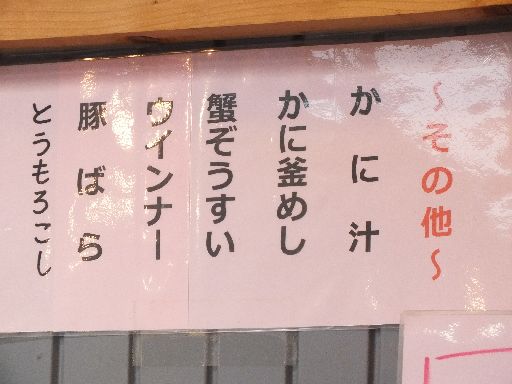 ～その他～
かに汁
かに釜めし
蟹ぞうすい
ウインナー
豚ばら
とうもろこし